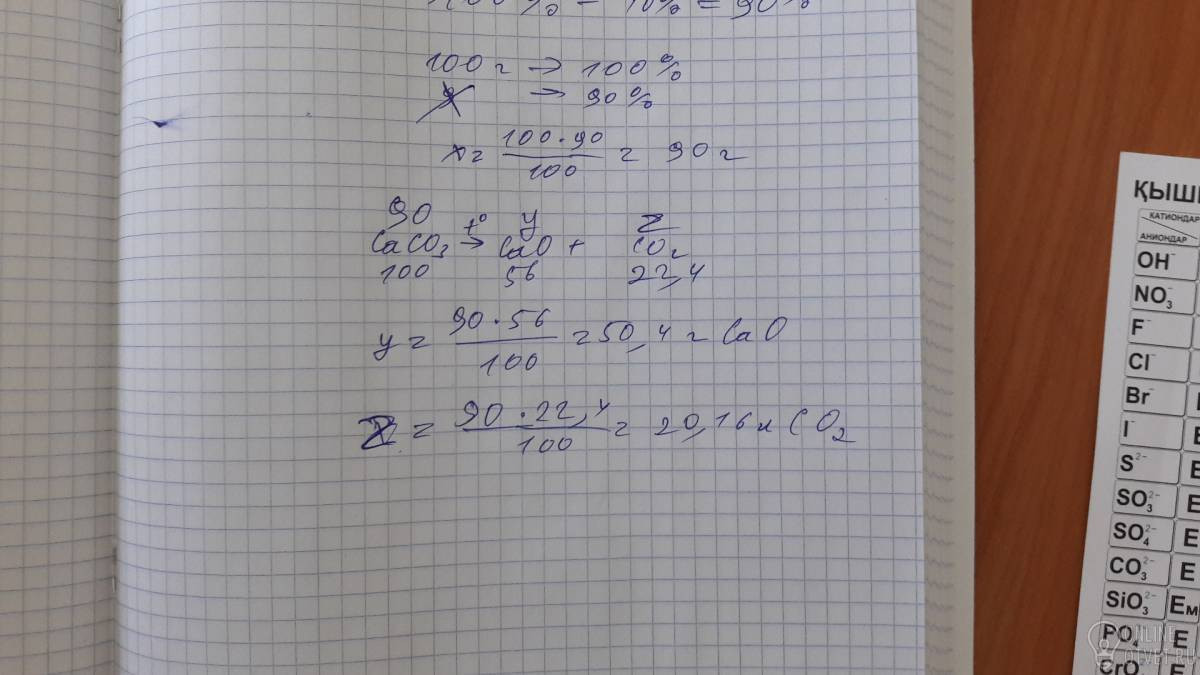 100% - 10% = 90%
100 г → 100%
x → 90%
x = 100 · 90 / 100 = 90 г
90 y z
CaCO₃ t° → CaO + CO₂
100 56 22,4
y = 90 · 56 / 100 = 50,4 г CaO
z = 90 · 22,4 / 100 = 20,16 л CO₂
ҚЫШ
КАТИОНДАР
АНИОНДАР
OH⁻
NO₃⁻
F⁻
Cl⁻
Br⁻
I⁻
S²⁻
SO₃²⁻ Е
SO₄²⁻ Е
CO₃²⁻ Е
SiO₃²⁻ Ем
PO₄ Е
CrO₄ Е
ONLINE
OTVET.RU